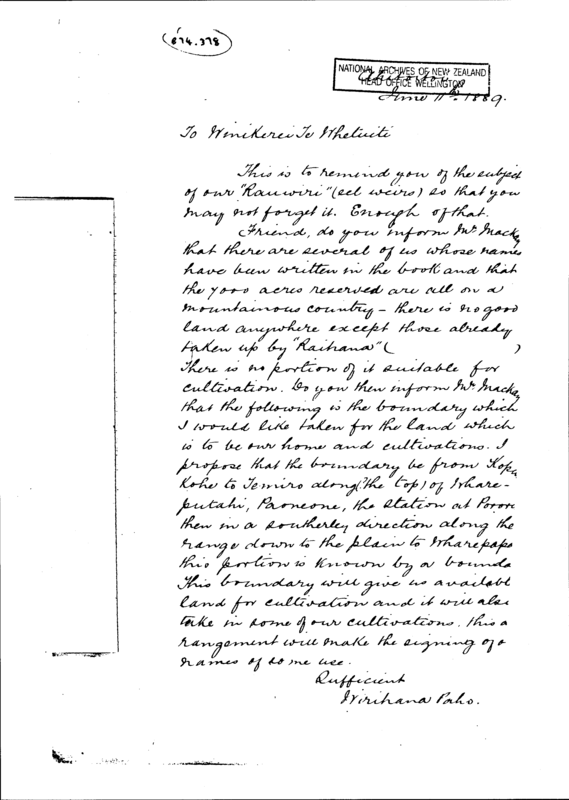 (674.378)
NATIONAL ARCHIVES OF NEW ZEALAND
HEAD OFFICE WELLINGTON
June 11th 1889.
To Winikerei Te Whetuiti
This is to remind you of the subject
of our "Rauwiri" (eel weirs) so that you
may not forget it. Enough of that.
Friend, do you inform Mr Mackay
that there are several of us whose names
have been written in the book and that
the 7000 acres reserved are all on a
mountainous country – there is no good
land anywhere except those already
taken up by "Raihana" ( )
There is no portion of it suitable for
cultivation. Do you then inform Mr Mackay
that the following is the boundary which
I would like taken for the land which
is to be our home and cultivations. I
propose that the boundary be from Kopu
Kohe to Temiro along (the top) of Whare-
putahi, Paoneone, the station at
then in a southerley direction along the
range down to the plain to Wharepapa
this portion is known by a bounda
This boundary will give us availabl
land for cultivation and it will also
take in some of our cultivations. this a
rangement will make the signing of o
names of some use.
Sufficient
Wirihana Paho.